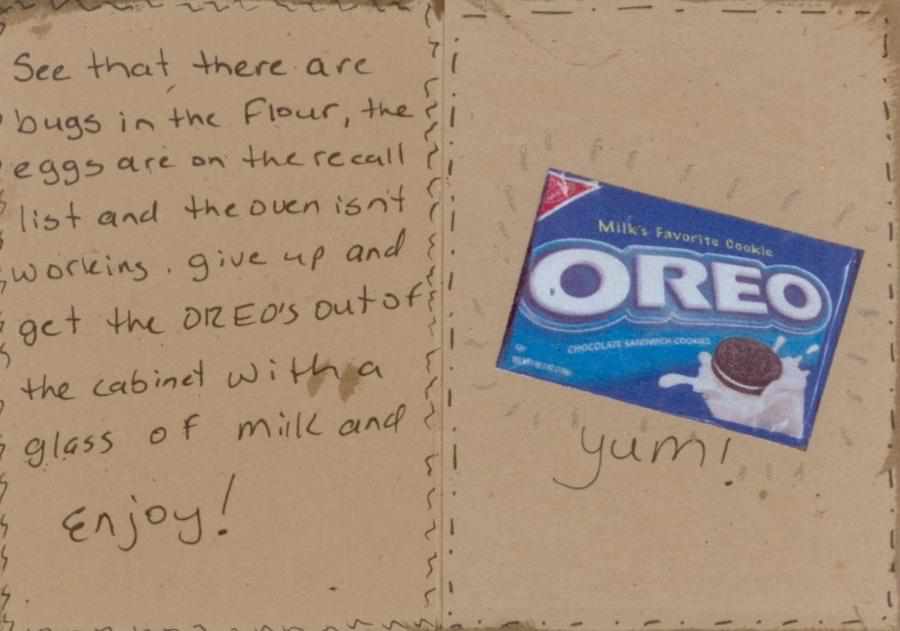 See that there are
bugs in the Flour, the
eggs are on the recall
list and the oven isn't
working. give up and
get the OREO's out of
the cabinet with a
glass of milk and
Enjoy!
Milk's Favorite Cookie
OREO
CHOCOLATE SANDWICH COOKIES
yum!